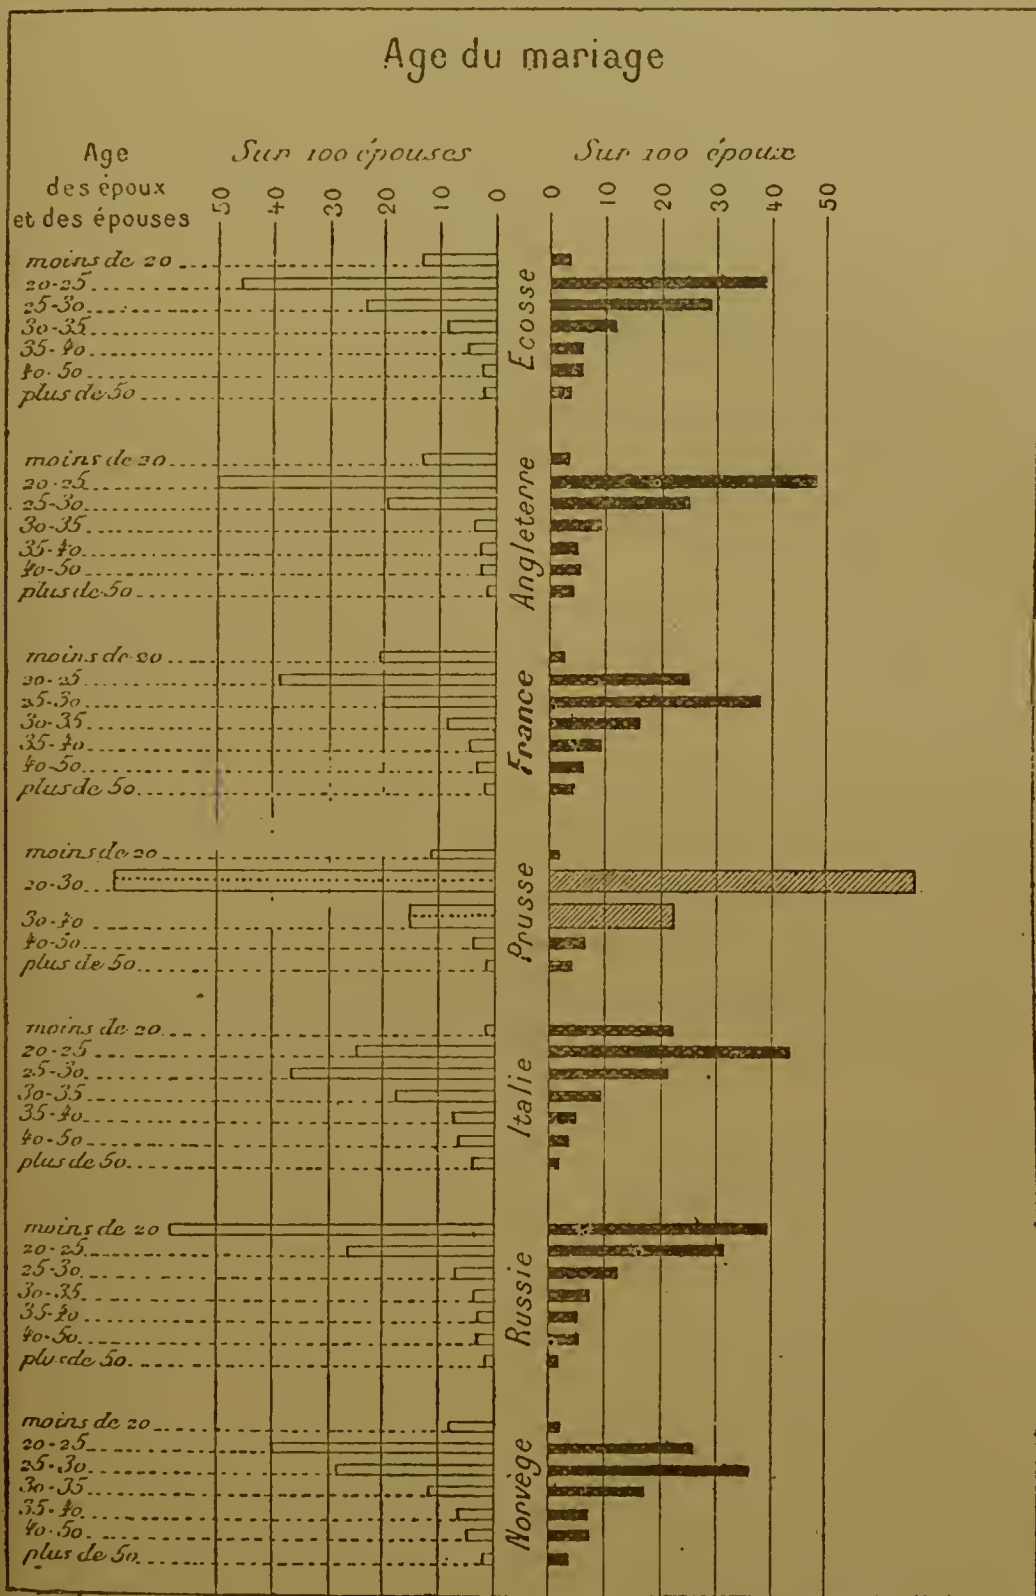 Age du mariage
Age
des époux
et des épouses
Sur 100 épouses
Sur 100 époux
50 40 30 20 10 0
0 10 20 30 40 50
moins de 20
20-25
25-30
30-35
35-40
40-50
plus de 50
Ecosse
moins de 20
20-25
25-30
30-35
35-40
40-50
plus de 50
Angleterre
moins de 20
20-25
25-30
30-35
35-40
40-50
plus de 50
France
moins de 20
20-30
30-40
40-50
plus de 50
Prusse
moins de 20
20-25
25-30
30-35
35-40
40-50
plus de 50
Italie
moins de 20
20-25
25-30
30-35
35-40
40-50
plus de 50
Russie
moins de 20
20-25
25-30
30-35
35-40
40-50
plus de 50
Norvège